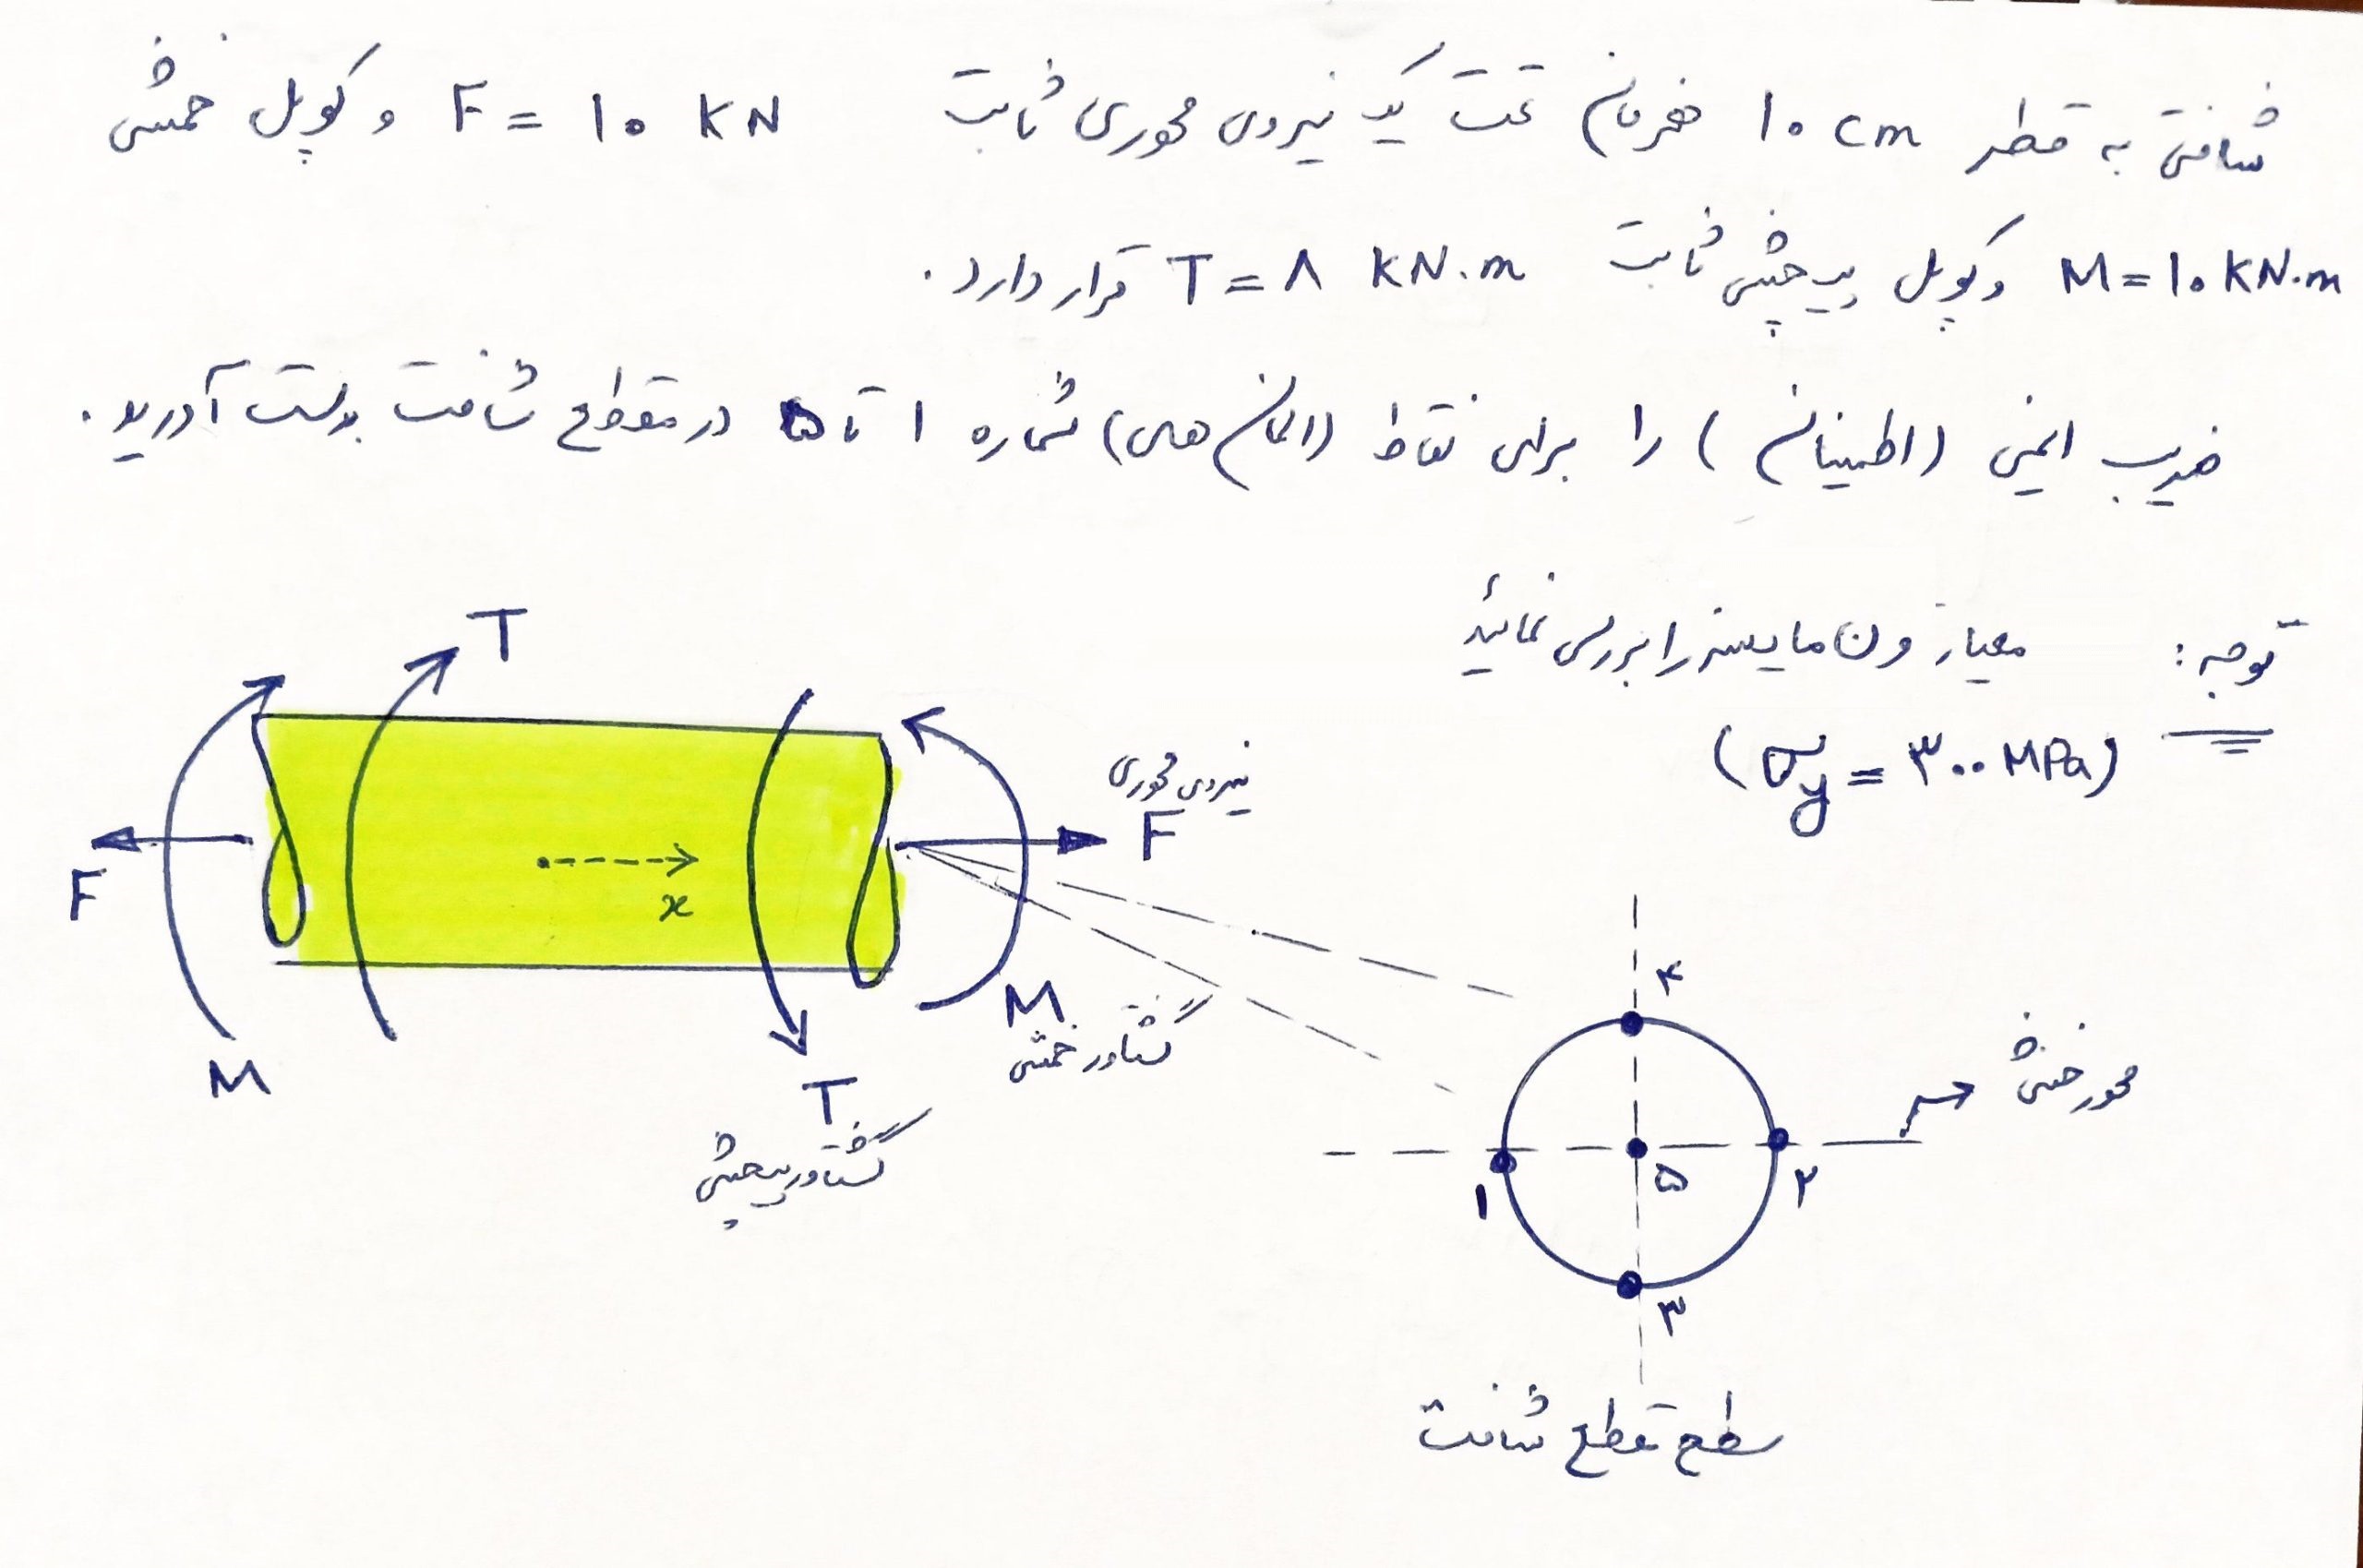 شافتی به قطر ۱۰ cm همزمان تحت یک نیروی محوری ثابت F = ۱۰ KN و کوپل خمشی
M = ۱۰ KN.m و کوپل پیچشی ثابت T = ۸ KN.m قرار دارد.
ضریب ایمنی (اطمینان) را برای نقاط (المان های) شماره ۱ تا ۵ در مقطع شافت بدست آورید.
توجه: معیار ون مایسز را بررسی نمائید
(σy = ۳۰۰ MPa)
T
نیروی محوری
F
F
x
M
گشتاور خمشی
M
T
گشتاور پیچشی
۴
محور خنثی
۱
۵
۲
۳
سطح مقطع شافت